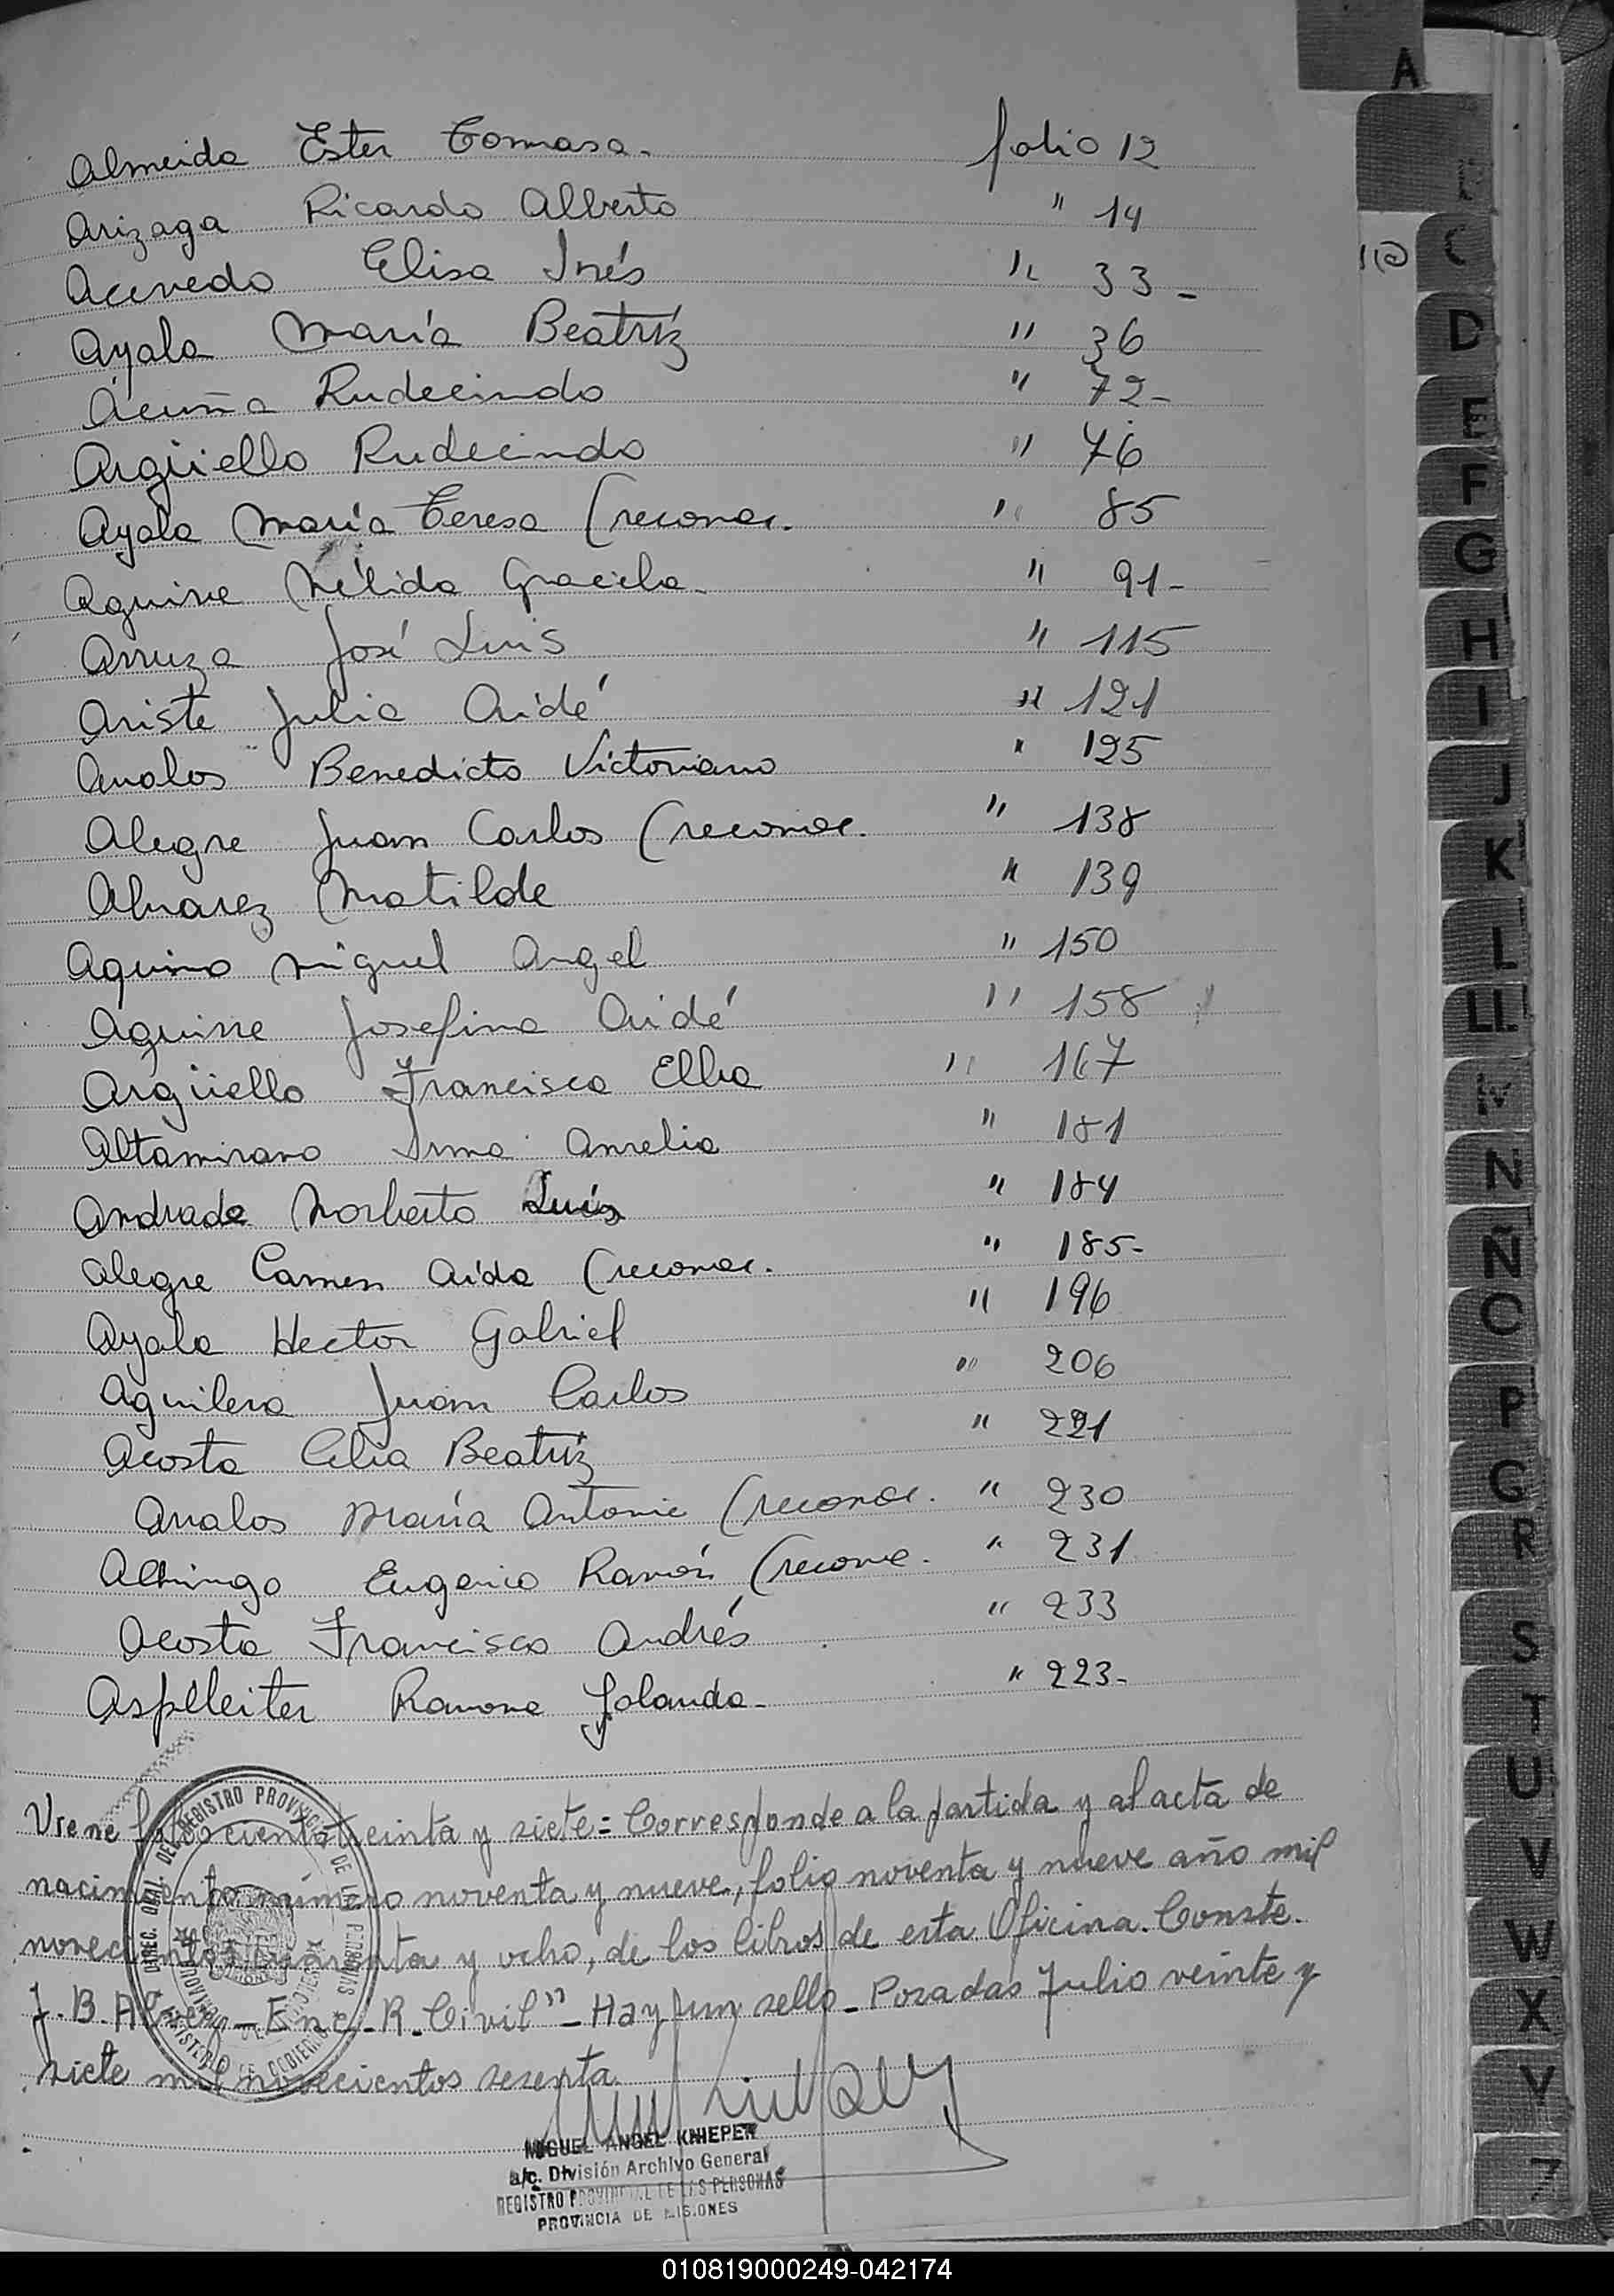 Almeida Ester Tomasa. folio 12
Arizaga Ricardo Alberto " 14
Acevedo Elisa Inés " 33-
Ayala María Beatríz " 36
Acuña Rudecindo " 72-
Argüello Rudecindo " 76
Ayala María Teresa (reconoc. " 85
Aguirre Nélida Graciela. " 91-
Arruza José Luis " 115
Ariste Julia Aidé " 121
Avalos Benedicto Victoriano " 125
Alegre Juan Carlos (reconoc. " 138
Alvarez Matilde " 139
Aquino Miguel Angel " 150
Aguirre Josefina Aidé " 158
Argüello Francisca Elba " 167
Altamirano Irma Amelia " 181
Andrade Norberto Luís " 184
Alegre Carmen Aida (reconoc. " 185-
Ayala Hector Gabriel " 196
Aguilera Juan Carlos " 206
Acosta Celia Beatríz " 221
Avalos María Antonia (reconoc. " 230
Eugenio Ramón (reconoc. " 231
Acosta Francisco Andrés " 233
Ramona Yolanda- " 223-
Viene folio ciento treinta y siete = Corresponde a la partida y al acta de
nacimiento número noventa y nueve, folio noventa y nueve año mil
novecientos y ocho, de los libros de esta Oficina. Conste.
J. B. - Enc. R. Civil" - Hay un sello - Posadas Julio veinte y
siete mil novecientos sesenta.
DIREC. GRAL. DEL REGISTRO PROVINCIAL DE LAS PERSONAS
MINISTERIO DE GOBIERNO
MIGUEL ANGEL KNIEPER
a/c. División Archivo General
REGISTRO PROVINCIAL DE LAS PERSONAS
PROVINCIA DE MISIONES
A
C
D
E
F
G
H
I
J
K
L
LL
M
N
Ñ
O
P
R
S
T
U
V
W
X
Y
Z
010819000249-042174